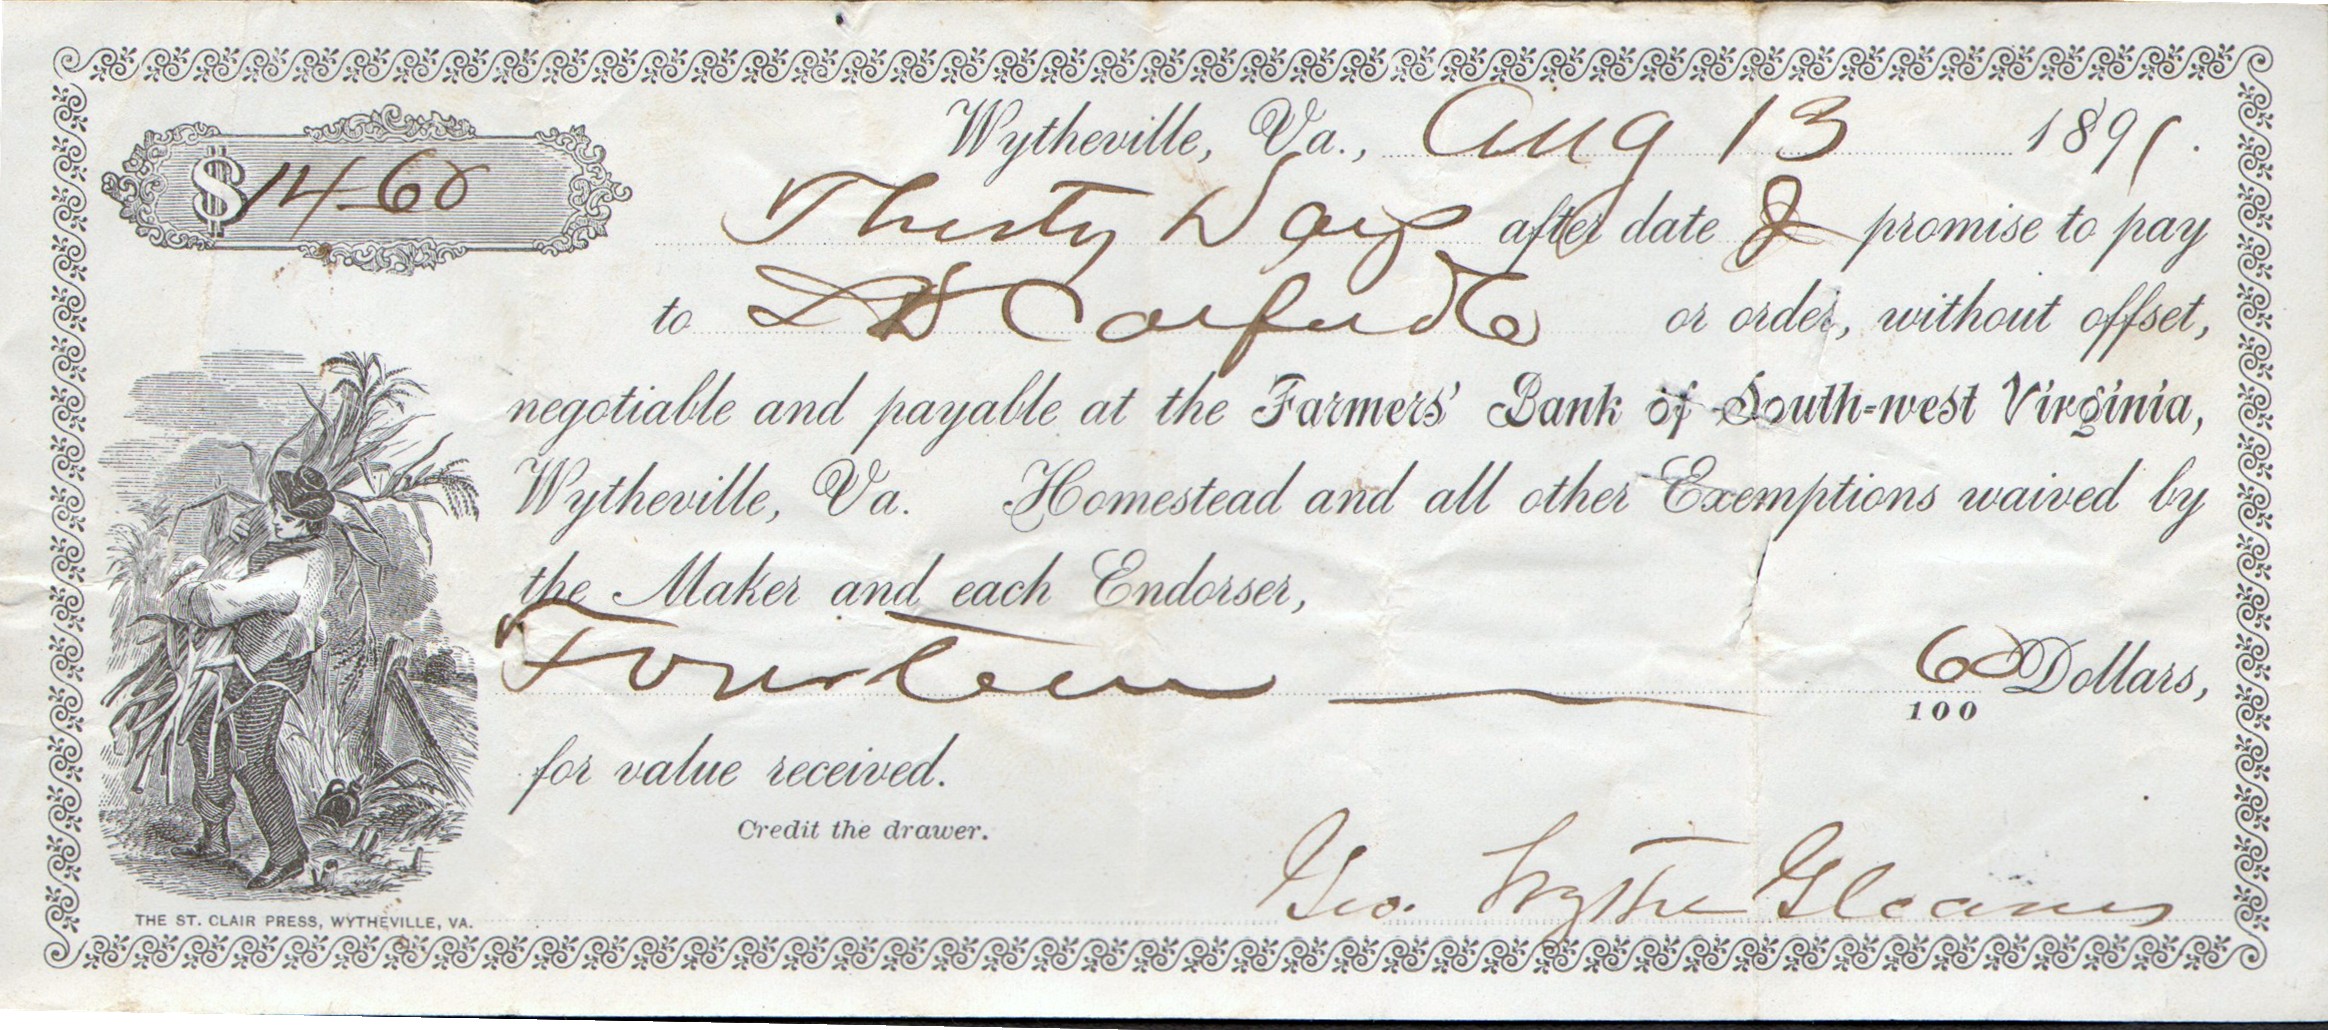 Wytheville, Va., Aug 13 1891.
$14.60
Thirty Days after date I promise to pay
to or order, without offset,
negotiable and payable at the Farmers' Bank of South-west Virginia,
Wytheville, Va. Homestead and all other Exemptions waived by
the Maker and each Endorser,
Fourteen 60/100 Dollars,
for value received.
Credit the drawer.
Geo. Wythe Gleaves
THE ST. CLAIR PRESS, WYTHEVILLE, VA.